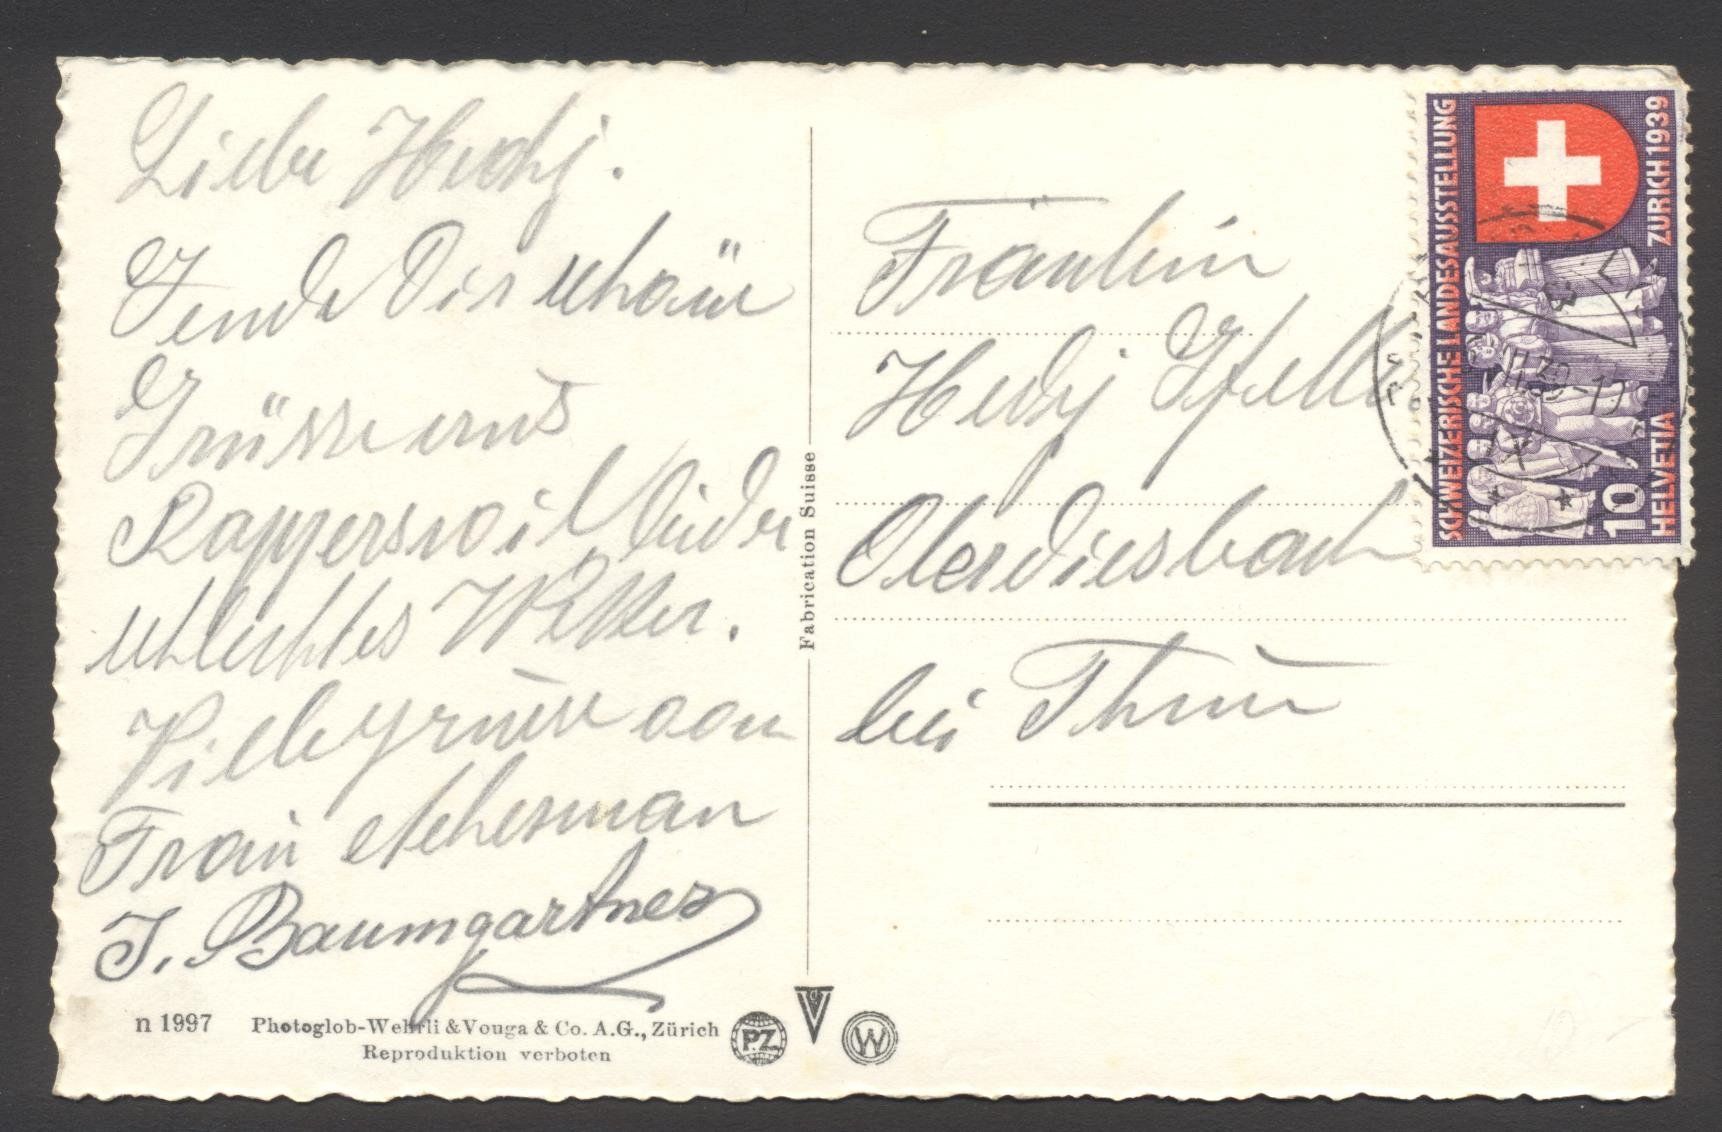 Liebe Hedy.
Sende Dir schöne
Grüsse aus
Rapperswil leider
schlechtes Wetter.
Viele Grüsse von
Frau Ackerman
J. Baumgartner
n 1997 Photoglob-Wehrli & Vouga & Co. A.G., Zürich
Reproduktion verboten
PZ
V
G
W
Fabrication Suisse
Fräulein
Hedy
Oberdiesbach
bei Thun
SCHWEIZERISCHE LANDESAUSSTELLUNG
ZÜRICH 1939
10
HELVETIA